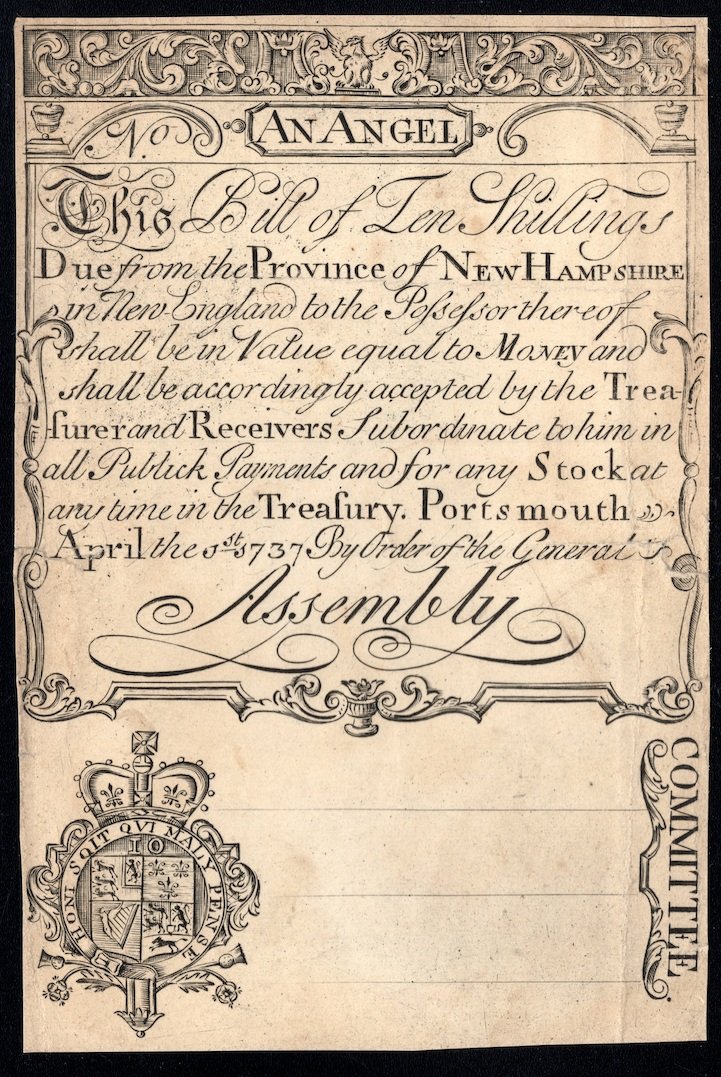 No
AN ANGEL
This Bill of Ten Shillings
Due from the Province of NEW HAMPSHIRE
in New England to the Poſseſsor thereof
shall be in Value equal to MONEY and
shall be accordingly accepted by the Trea-
ſurer and Receivers Subordinate to him in
all Publick Payments and for any Stock at
any time in the Treaſury. Portsmouth
April the 1st 1737 By Order of the General
Assembly
COMMITTEE.
HONI SOIT QVI MALY PENSE
10